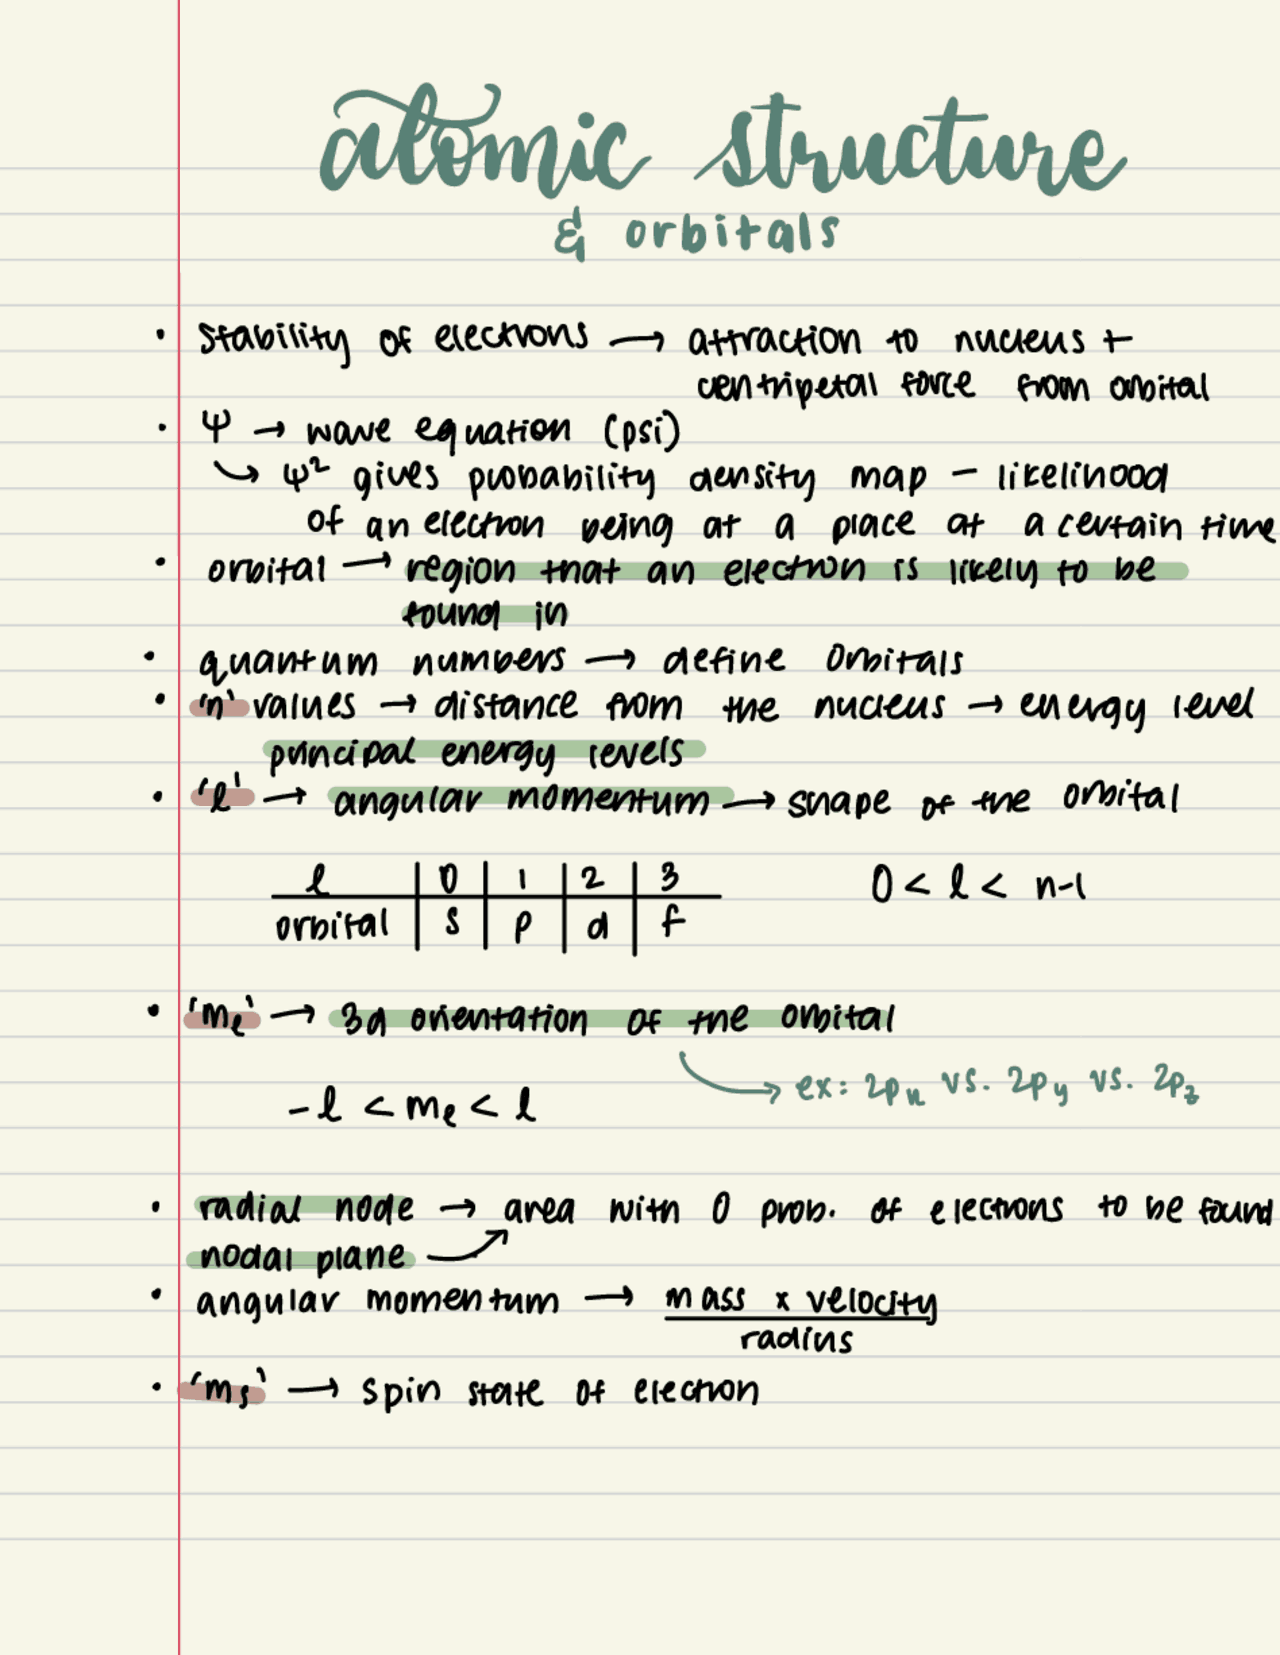 atomic structure
& orbitals
• stability of electrons → attraction to nucleus +
centripetal force from orbital
• Ψ → wave equation (psi)
↳ Ψ² gives probability density map – likelihood
of an electron being at a place at a certain time
• orbital → region that an electron is likely to be
found in
• quantum numbers → define orbitals
• 'n' values → distance from the nucleus → energy level
principal energy levels
• 'l' → angular momentum → shape of the orbital
l | 0 | 1 | 2 | 3
0 < l < n-1
orbital | s | p | d | f
• 'mₗ' → 3d orientation of the orbital
→ ex: 2pₓ vs. 2py vs. 2pz
-l < mₗ < l
• radial node → area with 0 prob. of electrons to be found
nodal plane
• angular momentum → mass x velocity
radius
• 'mₛ' → spin state of electron